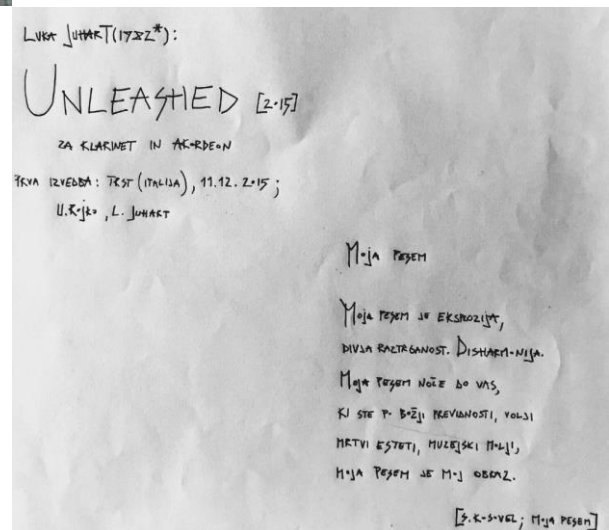 LUKA JUHART (1982*):
UNLEASHED [2•15]
ZA KLARINET IN AK•RDEON
PRVA IZVEDBA: TRST (ITALIJA), 11.12.2•15;
U.R•jko, L. JUHART
M•jA PESEM
M•jA PESEM JE EKSPLOZIJA,
DIVJA RAZTRGANOST. DISHARM•NIJA.
M•jA PESEM NOČE DO VAS,
KI STE P• B•Žji PREVIDNOSTI, VOLJI
MRTVI ESTETI, MUZEJSKI M•LJI,
M•JA PESEM JE M•J OBRAZ.
[S.K•S•VEL; M•jA PESEM]